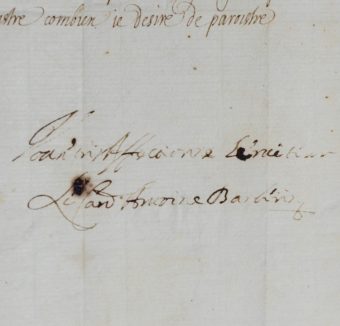 stre combien ie desire de paroistre
tres Affectionne Seruiteur
Le Card Antoine Barberin